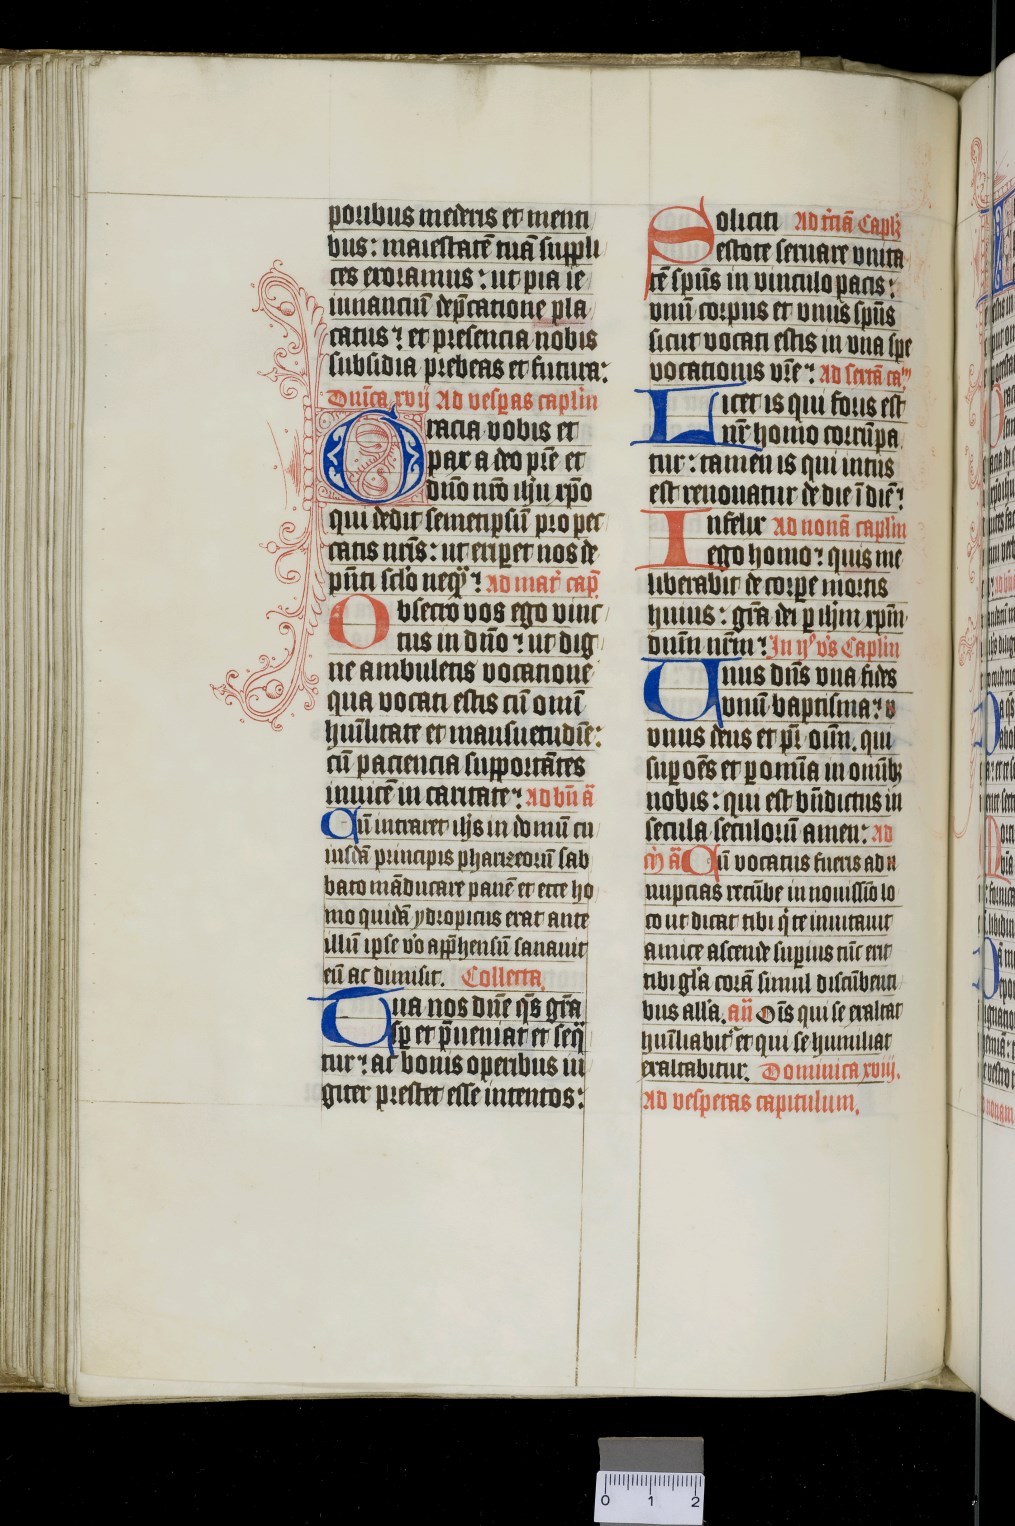 poribus mederis et menti
bus: maiestatē tuā suppli
ces exoramus: ut pia ie
iunanciū dep̄catione pla
catus: et presencia nobis
subsidia prebeas et futura:
Dnīca xvij Ad vesp̄as capl'm
Gracia vobis et
pax a deo pr̄e et
dn̄o nr̄o ihu xp̄o
qui dedit semetipsū pro pec
catis nr̄is: ut eriperet nos de
pn̄ti sclo neqͣ: ad mat' cap̄
Obsecro vos ego vinc
tus in dn̄o: ut dig
ne ambuletis vocatione
qua vocati estis cū omī
hūilitate et mansuetudīe:
cū paciencia supportātes
inuicē in caritate: ad bn̄ ā
Cū intraret ihs in domū cu
iusdā principis phariseorū sab
bato māducare panē et ecce ho
mo quidā ydropicus erat ante
illū ipse vo app̄hensū sanauit
eū ac dimisit. Collecta.
Tua nos dn̄e q̄s gr̄a
sp̄ et p̄ueniat et seqͣ
tur: ac bonis operibus iu
giter prestet esse intentos:
Soliciti Ad t'ciā Capl'
estote seruare vnita
tē sp̄us in vinculo pacis:
vnū corpus et vnus sp̄us
sicut vocati estis in vna spe
vocationis vr̄e: Ad sextā ca'm
Licet is qui foris est
nr̄ homo corrūpa
tur: tamen is qui intus
est renouatur de die ī diē:
Infelix Ad nonā capl'm
ego homo: quis me
liberabit de corpe mortis
huius: gr̄a dei p ihm xpm̄
dnm̄ nrm̄: In ijͦ vs̄ Capl'm
Unus dn̄s vna fides
vnū baptisma: v
vnus deus et pr̄ oīm. qui
sup oēs et p omīa in omībꝫ
nobis: qui est bn̄dictus in
secula seculorū amen: Ad
m̄ ā Cū vocatus fueris ad n
nuptias recūbe in nouissīo lo
co ut dicat tibi qͥ te inuitauit
amice ascende supius tūc erit
tibi gl'a corā simul discūbenti
bus all'a. an̄ Oīs qui se exaltat
hūiliabit' et qui se humiliat
exaltabitur. Dominica xviij.
Ad vesperas capitulum.
0 1 2